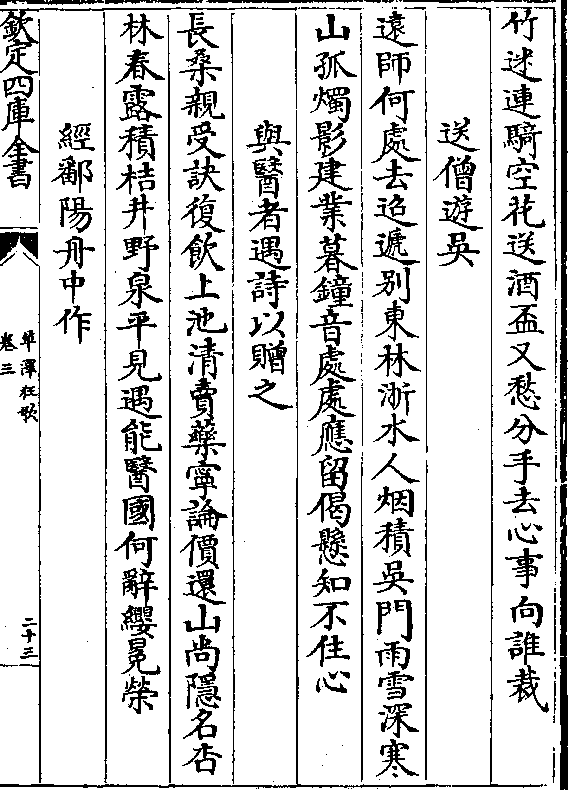 竹迷連騎空花送酒盃又愁分手去心事向誰裁
送僧遊吳
遠師何處去迢遞別東林浙水人烟積吳門雨雪深寒
山孤燭影建業暮鐘音處處應留偈懸知不住心
與醫者遇詩以贈之
長桑親受訣復飲上池清賣藥寧論價還山尚隱名杏
林春露積桔井野泉平見遇能醫國何辭纓冕榮
經鄱陽舟中作
欽定四庫全書
皐澤狂歌
卷三
二十三